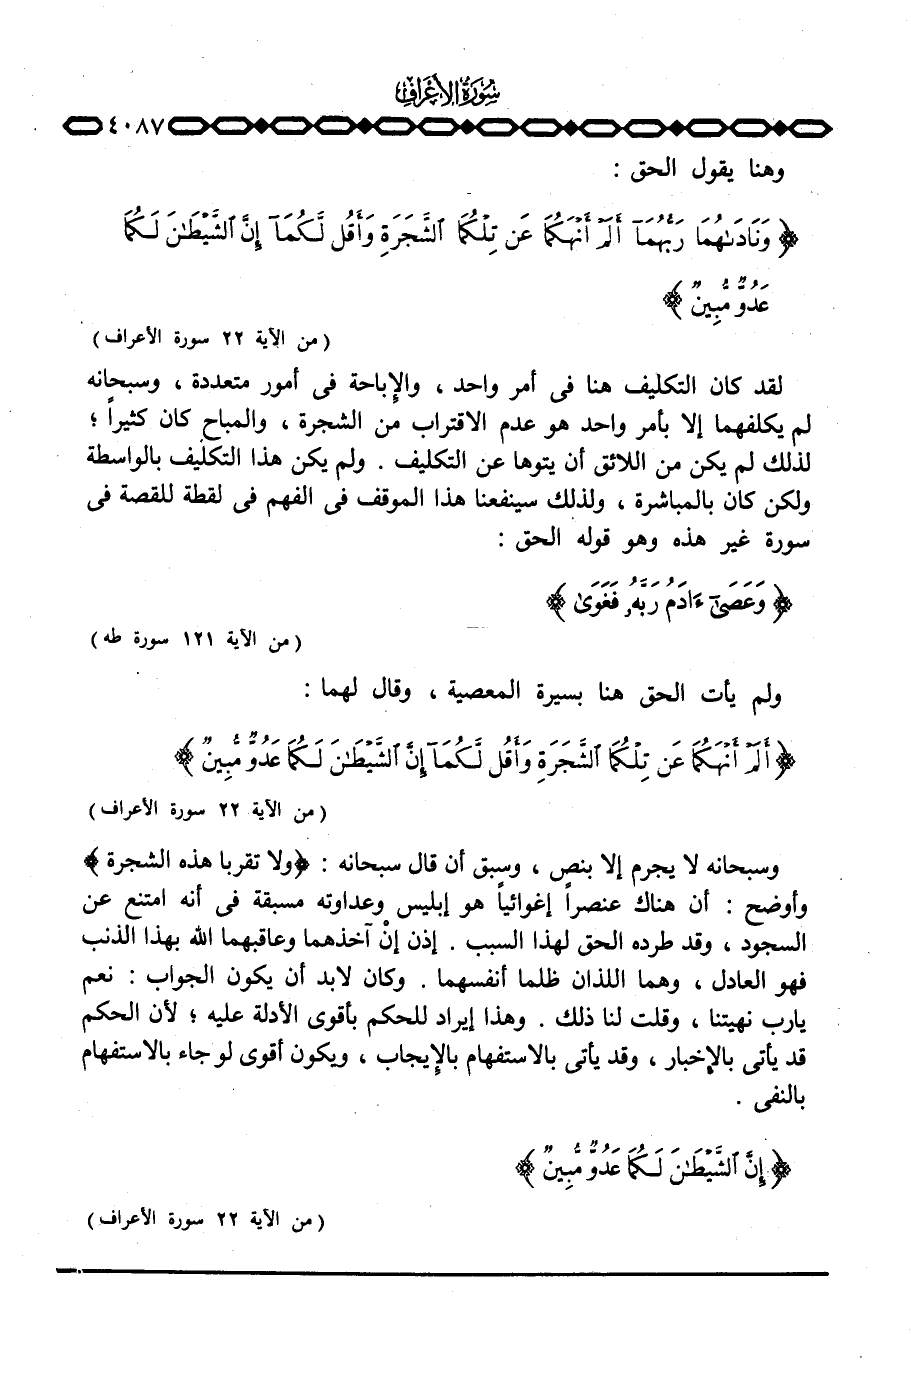 سورة الأعراف
٤٠٨٧
وهنا يقول الحق :
﴿ وَنَادَىٰهُمَا رَبُّهُمَآ أَلَمْ أَنْهَكُمَا عَن تِلْكُمَا ٱلشَّجَرَةِ وَأَقُل لَّكُمَآ إِنَّ ٱلشَّيْطَٰنَ لَكُمَا
عَدُوٌّ مُّبِينٌ ﴾
( من الآية ٢٢ سورة الأعراف )
لقد كان التكليف هنا فى أمر واحد ، والإباحة فى أمور متعددة ، وسبحانه
لم يكلفهما إلا بأمر واحد هو عدم الاقتراب من الشجرة ، والمباح كان كثيراً ؛
لذلك لم يكن من اللائق أن يتوها عن التكليف . ولم يكن هذا التكليف بالواسطة
ولكن كان بالمباشرة ، ولذلك سينفعنا هذا الموقف فى الفهم فى لقطة للقصة فى
سورة غير هذه وهو قوله الحق :
﴿ وَعَصَىٰٓ ءَادَمُ رَبَّهُۥ فَغَوَىٰ ﴾
( من الآية ١٢١ سورة طه )
ولم يأت الحق هنا بسيرة المعصية ، وقال لهما :
﴿ أَلَمْ أَنْهَكُمَا عَن تِلْكُمَا ٱلشَّجَرَةِ وَأَقُل لَّكُمَآ إِنَّ ٱلشَّيْطَٰنَ لَكُمَا عَدُوٌّ مُّبِينٌ ﴾
( من الآية ٢٢ سورة الأعراف )
وسبحانه لا يجرم إلا بنص ، وسبق أن قال سبحانه : ﴿ولا تقربا هذه الشجرة ﴾
وأوضح : أن هناك عنصراً إغوائياً هو إبليس وعداوته مسبقة فى أنه امتنع عن
السجود ، وقد طرده الحق لهذا السبب . إذن إنْ آخذهما وعاقبهما الله بهذا الذنب
فهو العادل ، وهما اللذان ظلما أنفسهما . وكان لابد أن يكون الجواب : نعم
يارب نهيتنا ، وقلت لنا ذلك . وهذا إيراد للحكم بأقوى الأدلة عليه ؛ لأن الحكم
قد يأتى بالإخبار ، وقد يأتى بالاستفهام بالإيجاب ، ويكون أقوى لو جاء بالاستفهام
بالنفى .
﴿ إِنَّ ٱلشَّيْطَٰنَ لَكُمَا عَدُوٌّ مُّبِينٌ ﴾
( من الآية ٢٢ سورة الأعراف )